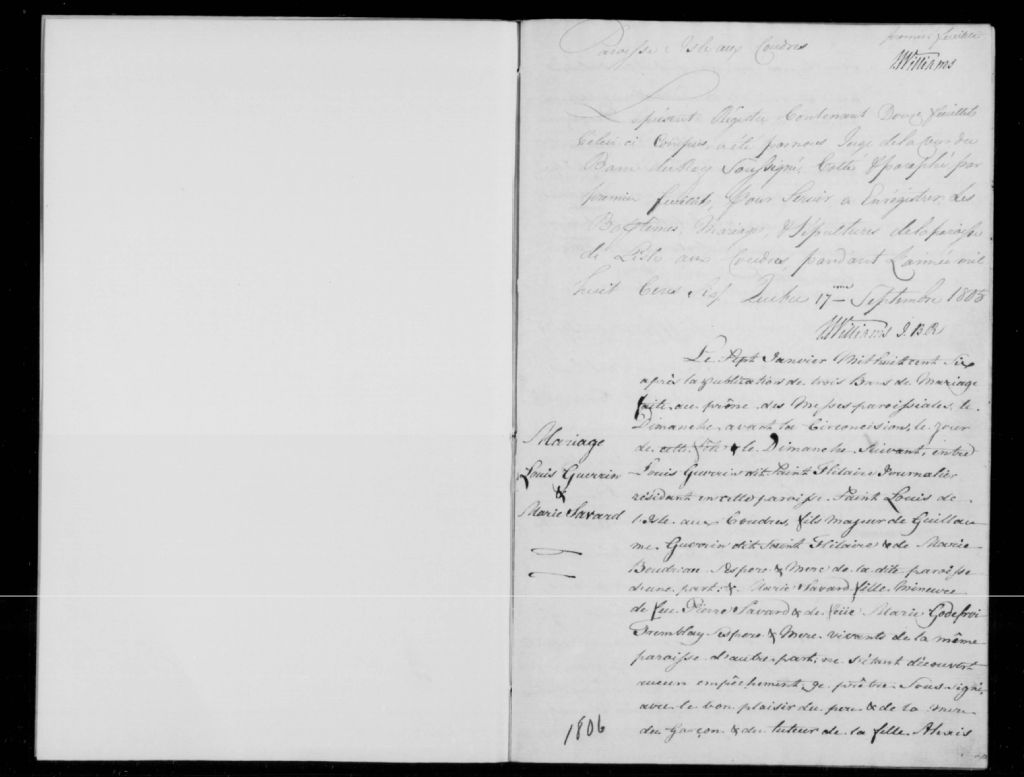 premier feuillet
Paroisse Isle aux Coudres
JWilliams
Le présent Régistre Contenant Douze feuillets
Celui ci Compris, a été par nous Juge de la Cour du
Banc du Roy Soussigné, Cotté & paraphé par
premier feuillet, Pour Servir a Enrégistrer Les
Baptêmes, Mariages, & Sépultures de la paroisse
de L'isle aux Coudres pandant L'année mil
huit Cens Six, Quebec 17me Septembre 1805
JWilliams J. B R
Le Sept Janvier Mil huit cent Six
après la publication de trois Bans de Mariage
faite au prône des Messes paroissiales, le
Dimanche avant la Circoncision, le jour
de cette fête & le Dimanche Suivant, entre
Louis Guerrin dit Saint Hilaire Journalier
résidant en cette paroisse Saint Louis de
l'Isle aux Coudres, fils majeur de Guillau
me Guerrin dit Saint Hilaire & de Marie
Boudreau Ses pere & Mere de la dite paroisse
d'une part; & Marie Savard fille Mineure
de feu Pierre Savard & de feüe Marie Godefroi
Tremblay Ses pere & Mere vivants de la même
paroisse d'autre part; ne s'étant découvert
aucun empêchement, Je prêtre Soussigné,
avec le bon plaisir du pere & de la Mere
du Garçon & du tuteur de la fille Alexis
Mariage
Louis Guerrin
&
Marie Savard
1806